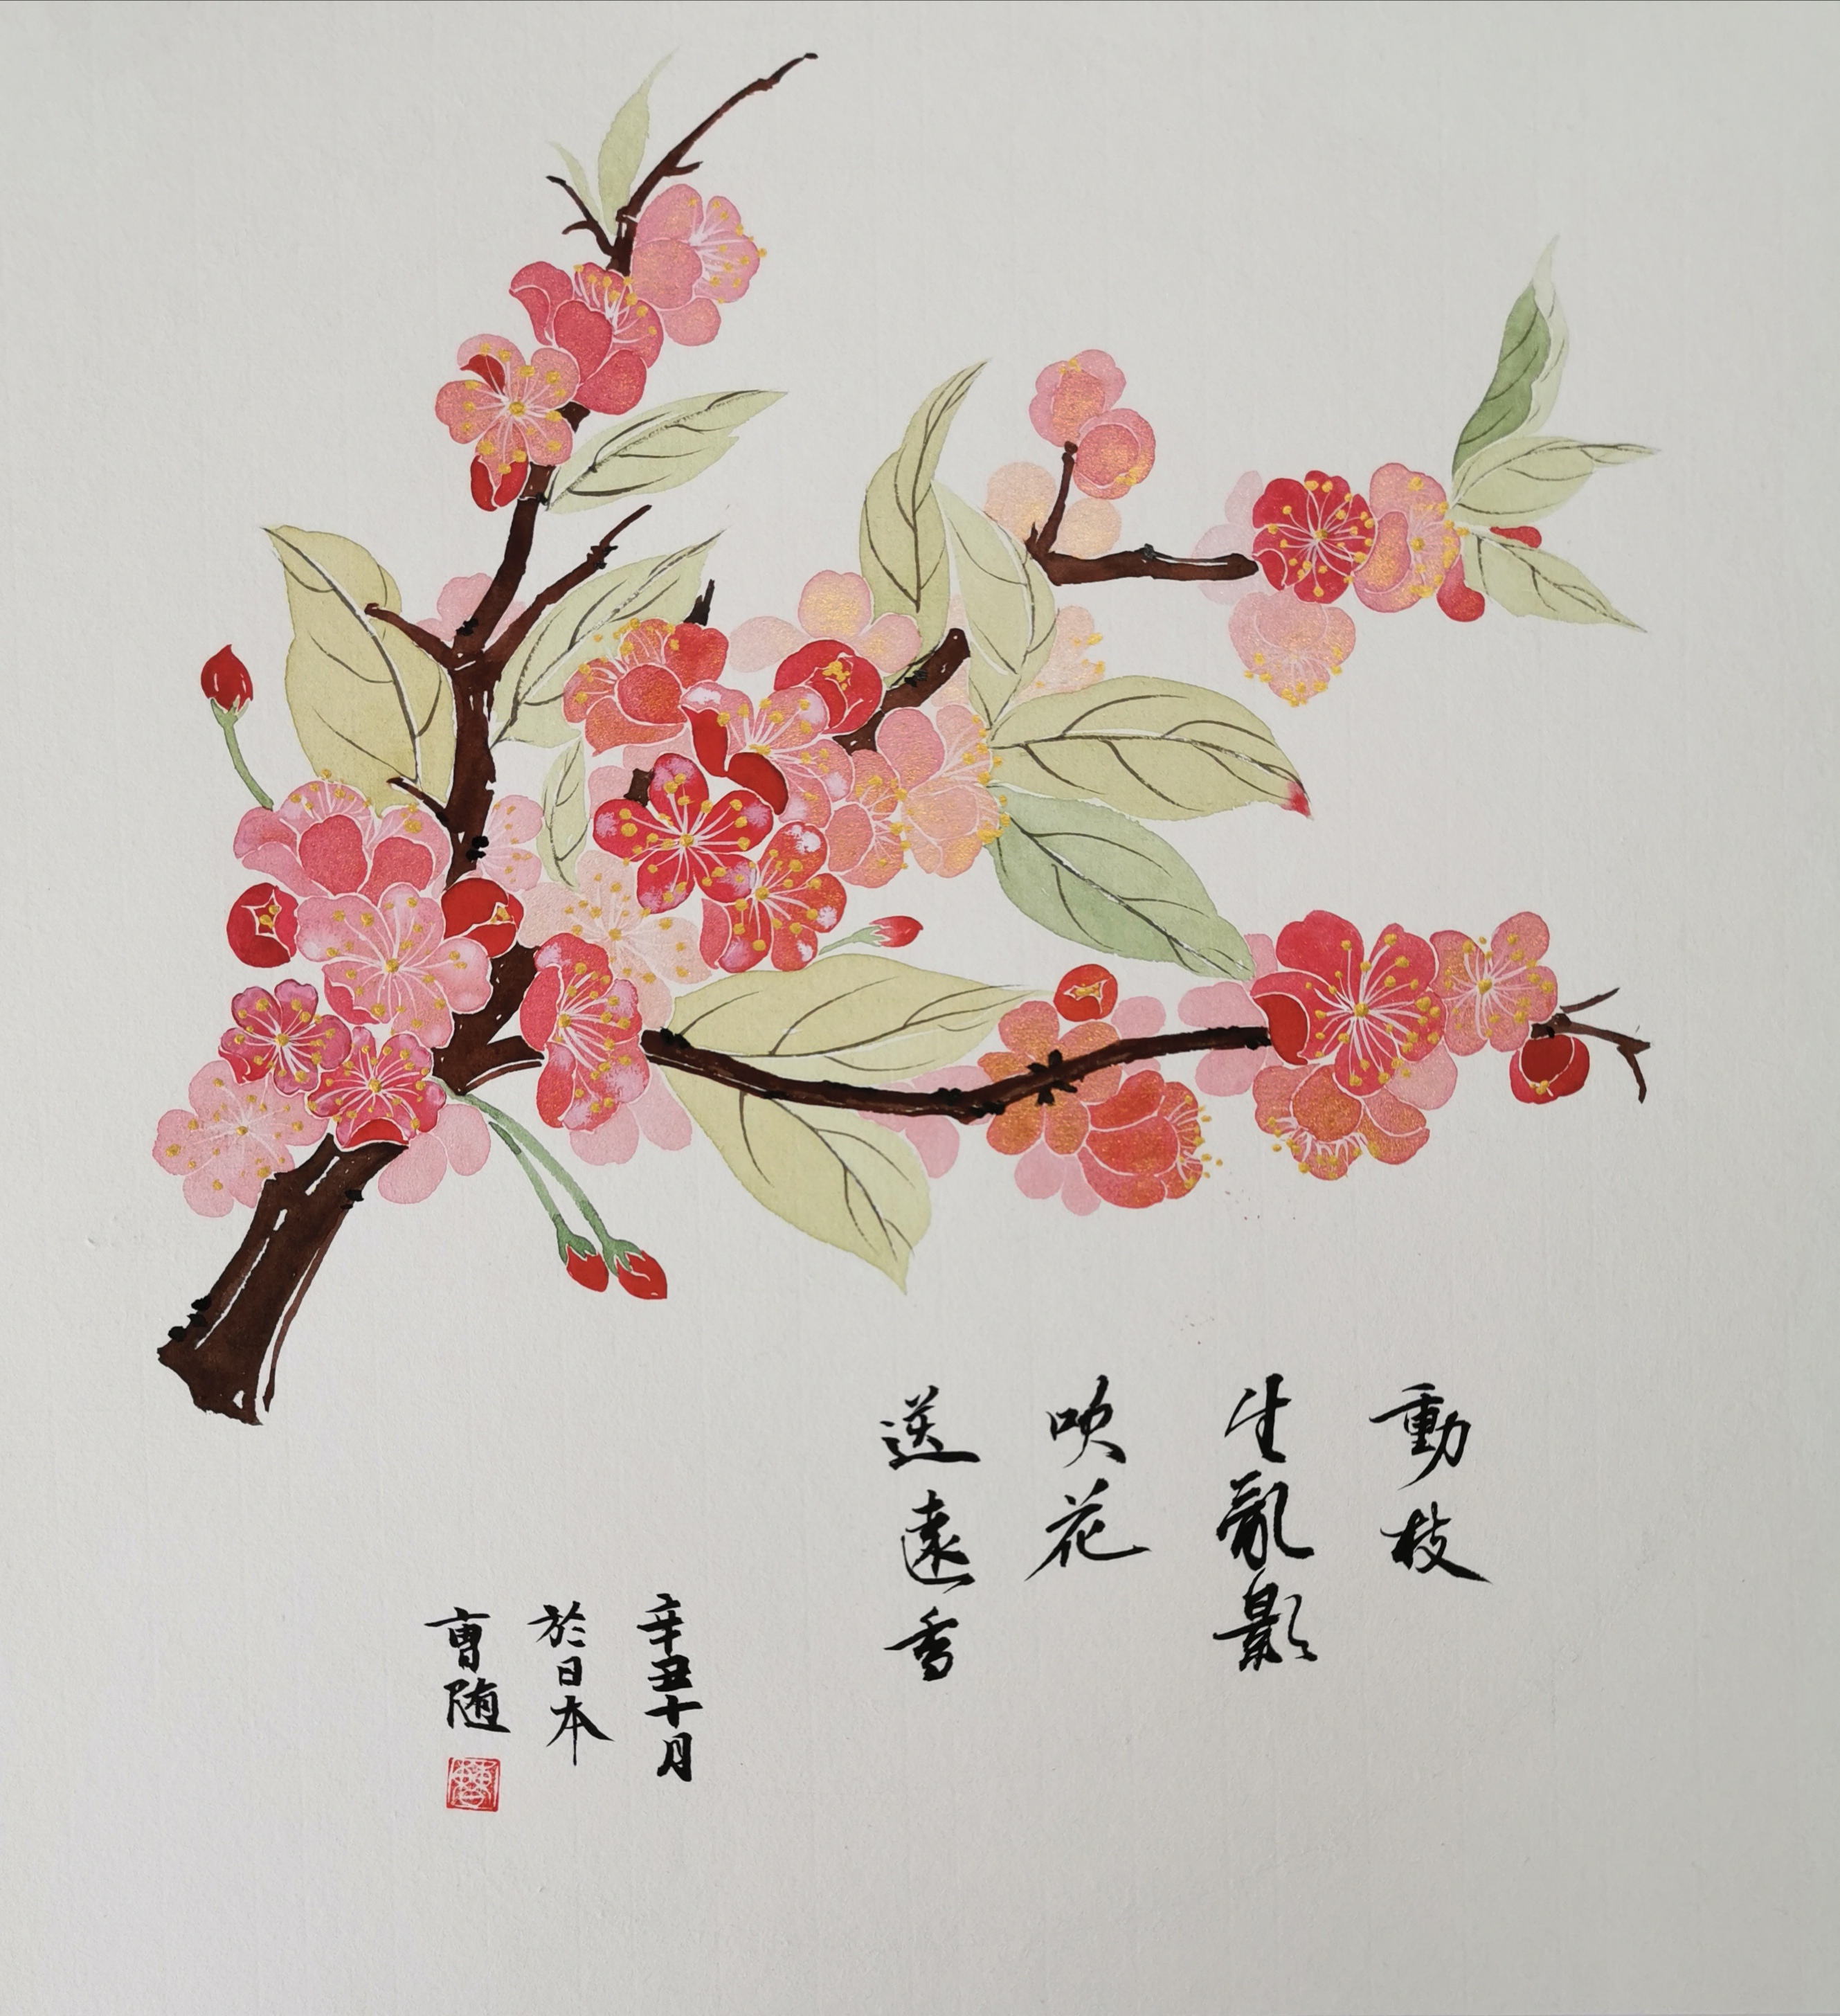 動枝
生亂影
吹花
送遠香
辛丑十月
於日本
曹随